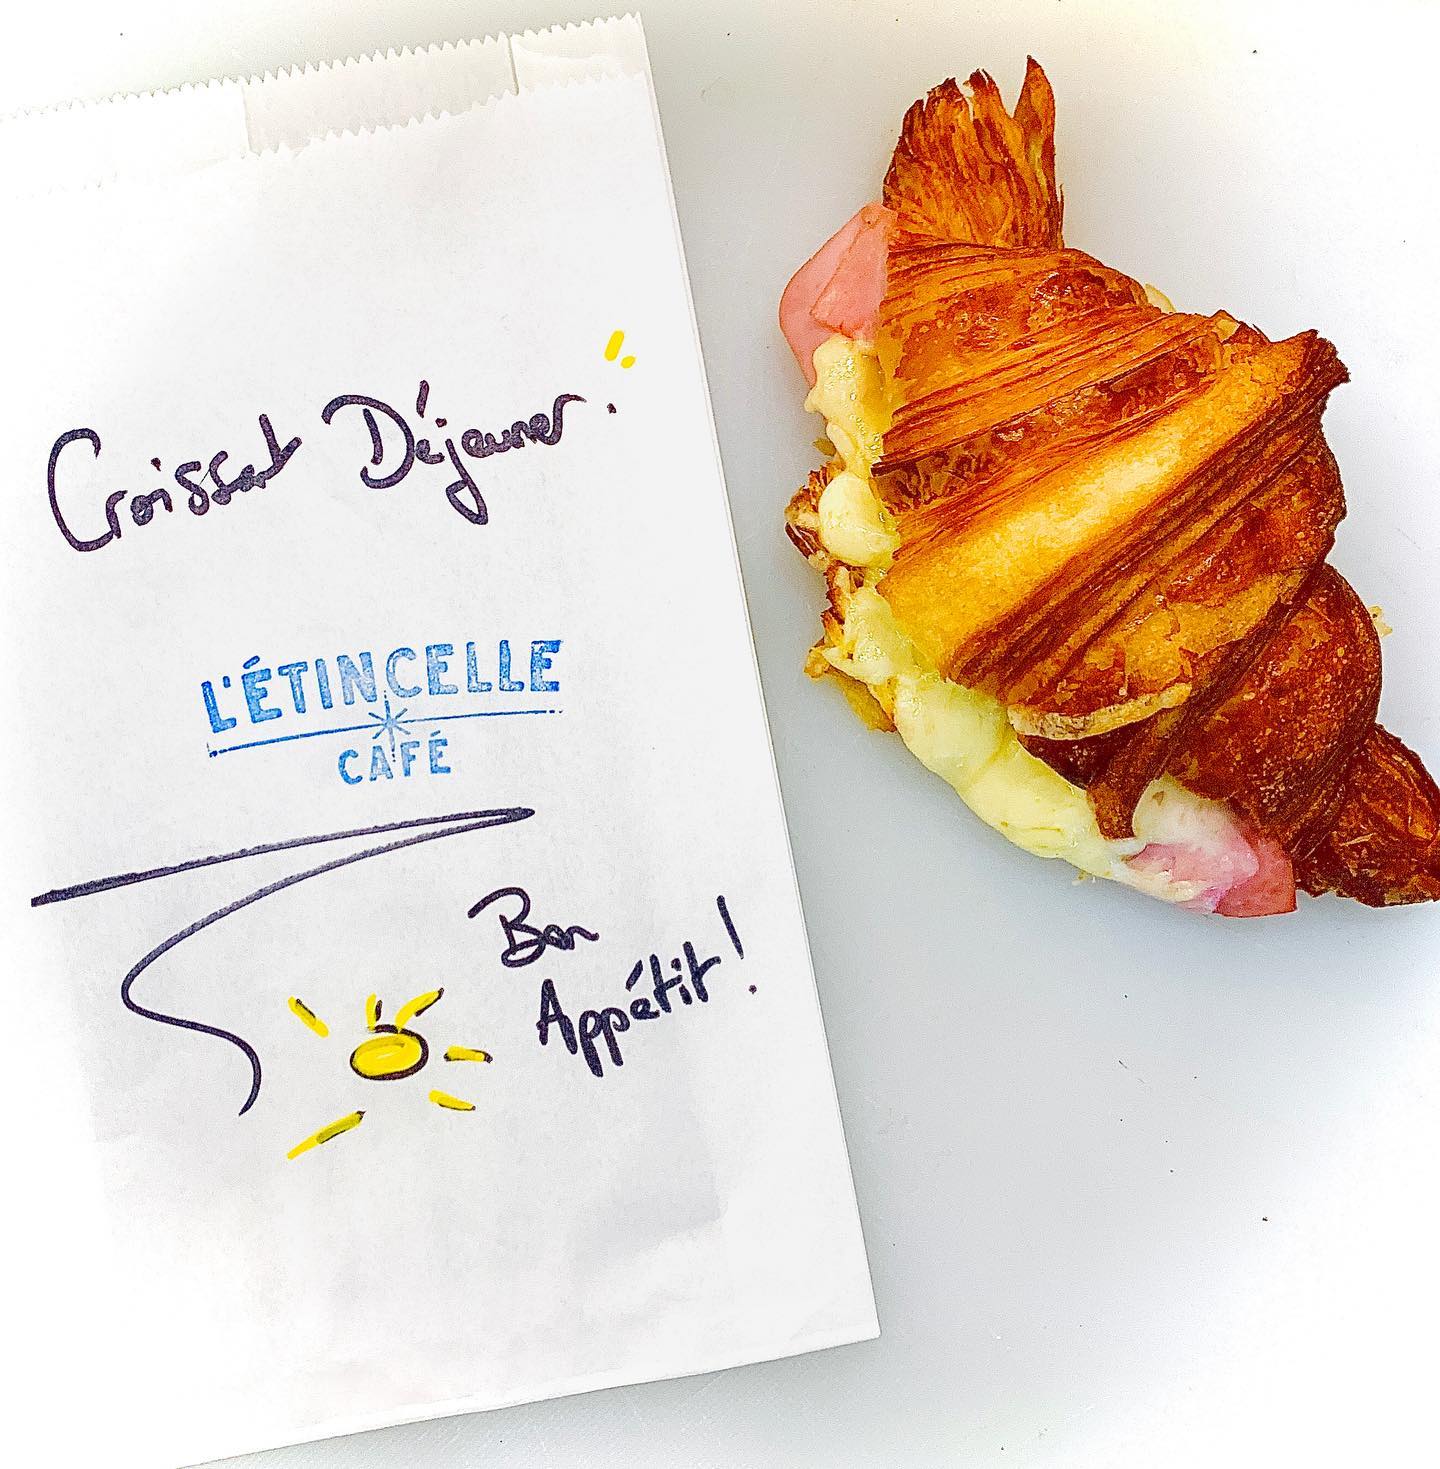 Croissat Déjeuner!
L'ÉTINCELLE
CAFÉ
Bon
Appétit!